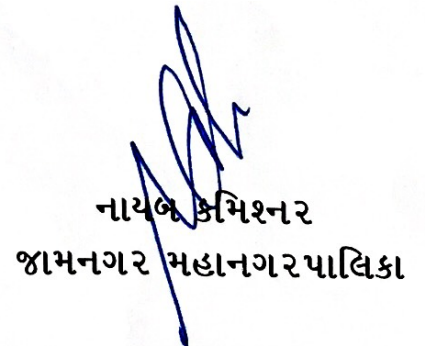 નાયબ કમિશ્નર
જામનગર મહાનગરપાલિકા